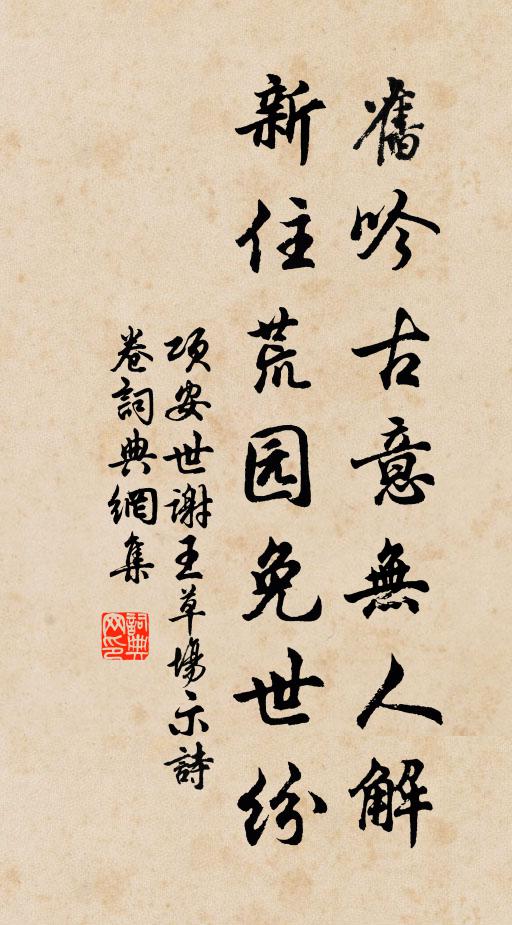 舊吟古意無人解
新住荒园免世紛
项安世谢王草場示詩
卷詞典網集
詞典网印